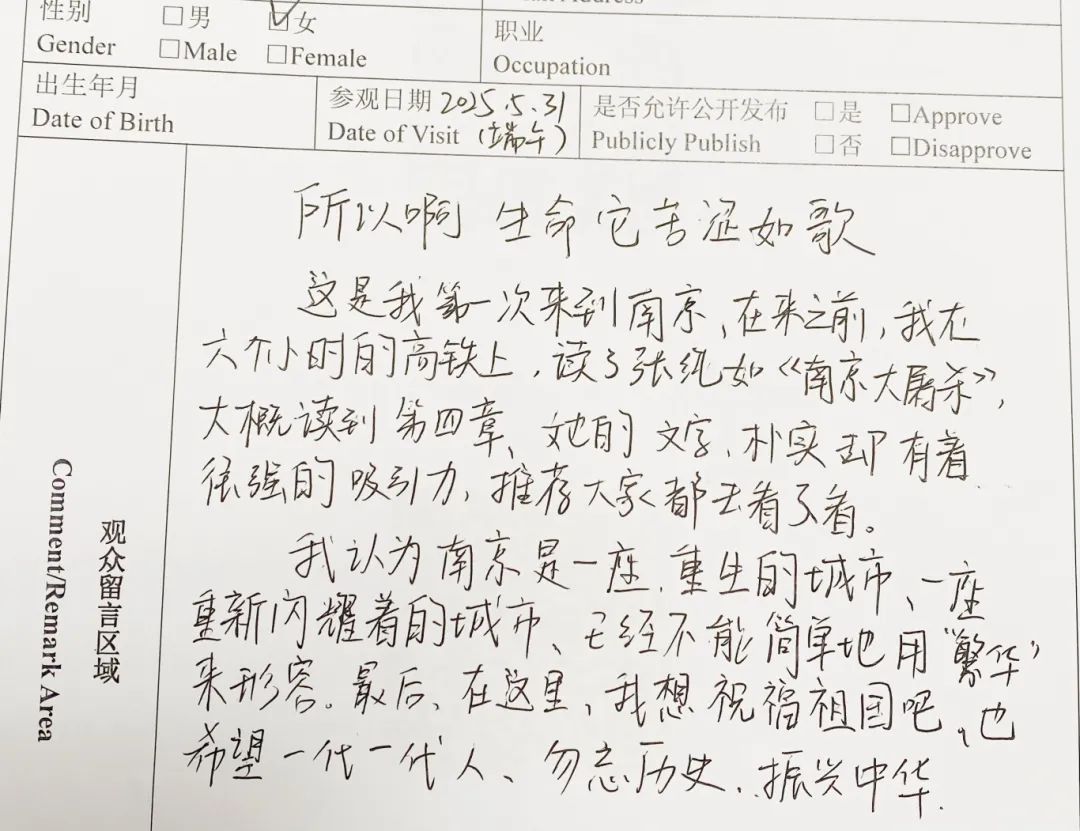 性别 □男 ☑女
Gender □Male □Female
职业
Occupation
出生年月
Date of Birth
参观日期 2025.5.31
Date of Visit (端午)
是否允许公开发布 □是 □Approve
Publicly Publish □否 □Disapprove
观众留言区域
Comment/Remark Area
所以啊 生命它苦涩如歌
这是我第一次来到南京、在来之前,我在
六个小时的高铁上,读了张纯如《南京大屠杀》,
大概读到第四章、她的文字,朴实却有着
很强的吸引力,推荐大家都去看了看。
我认为南京是一座,重生的城市、一座
重新闪耀着的城市、已经不能简单地用“繁华”
来形容。最后、在这里,我想祝福祖国吧,也
希望一代一代人、勿忘历史,振兴中华.